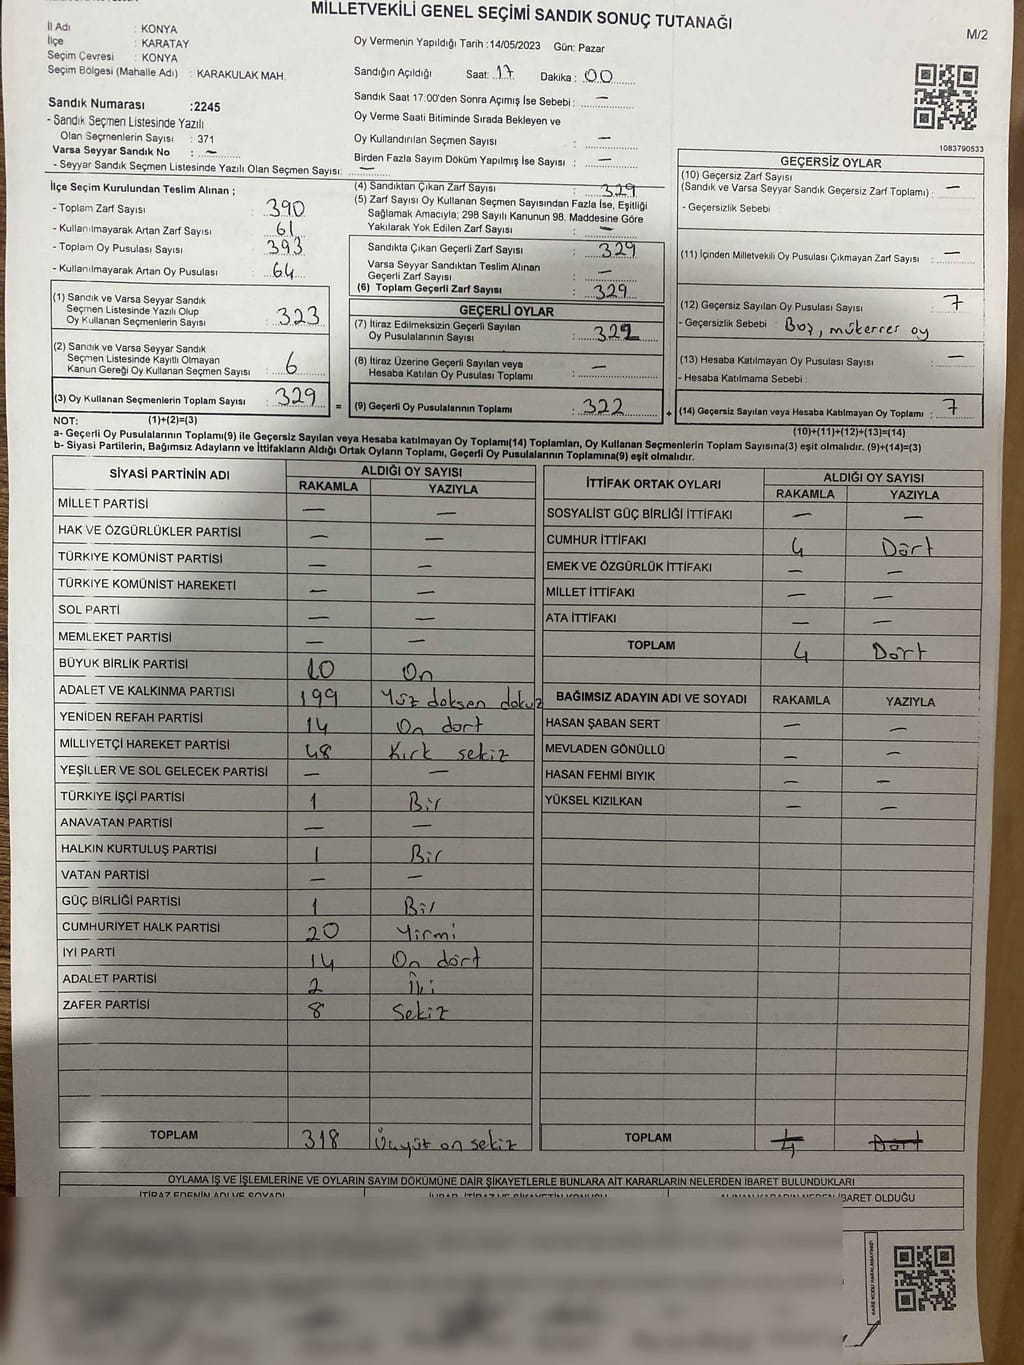 MİLLETVEKİLİ GENEL SEÇİMİ SANDIK SONUÇ TUTANAĞI
M/2
İl Adı : KONYA
İlçe : KARATAY
Seçim Çevresi : KONYA
Seçim Bölgesi (Mahalle Adı) : KARAKULAK MAH.
Oy Vermenin Yapıldığı Tarih :14/05/2023 Gün: Pazar
Sandığın Açıldığı Saat: 17 Dakika : 00
Sandık Saat 17:00'den Sonra Açımış İse Sebebi : —
Oy Verme Saati Bitiminde Sırada Bekleyen ve
Oy Kullandırılan Seçmen Sayısı : —
Birden Fazla Sayım Döküm Yapılmış İse Sayısı : —
1083790533
Sandık Numarası :2245
- Sandık Seçmen Listesinde Yazılı
Olan Seçmenlerin Sayısı : 371
Varsa Seyyar Sandık No : —
- Seyyar Sandık Seçmen Listesinde Yazılı Olan Seçmen Sayısı: —
İlçe Seçim Kurulundan Teslim Alınan ;
- Toplam Zarf Sayısı : 390
- Kullanılmayarak Artan Zarf Sayısı : 61
- Toplam Oy Pusulası Sayısı : 393
- Kullanılmayarak Artan Oy Pusulası : 64
(1) Sandık ve Varsa Seyyar Sandık
Seçmen Listesinde Yazılı Olup
Oy Kullanan Seçmenlerin Sayısı : 323
(2) Sandık ve Varsa Seyyar Sandık
Seçmen Listesinde Kayıtlı Olmayan
Kanun Gereği Oy Kullanan Seçmen Sayısı : 6
(3) Oy Kullanan Seçmenlerin Toplam Sayısı : 329
(4) Sandıktan Çıkan Zarf Sayısı : 329
(5) Zarf Sayısı Oy Kullanan Seçmen Sayısından Fazla İse, Eşitliği
Sağlamak Amacıyla; 298 Sayılı Kanunun 98. Maddesine Göre
Yakılarak Yok Edilen Zarf Sayısı : —
Sandıkta Çıkan Geçerli Zarf Sayısı : 329
Varsa Seyyar Sandıktan Teslim Alınan
Geçerli Zarf Sayısı : —
(6) Toplam Geçerli Zarf Sayısı : 329
GEÇERLİ OYLAR
(7) İtiraz Edilmeksizin Geçerli Sayılan
Oy Pusulalarının Sayısı : 322
(8) İtiraz Üzerine Geçerli Sayılan veya
Hesaba Katılan Oy Pusulası Toplamı : —
= (9) Geçerli Oy Pusulalarının Toplamı : 322 +
GEÇERSİZ OYLAR
(10) Geçersiz Zarf Sayısı
(Sandık ve Varsa Seyyar Sandık Geçersiz Zarf Toplamı) : —
- Geçersizlik Sebebi :
(11) İçinden Milletvekili Oy Pusulası Çıkmayan Zarf Sayısı : —
(12) Geçersiz Sayılan Oy Pusulası Sayısı : 7
- Geçersizlik Sebebi : Boş, mükerrer oy
(13) Hesaba Katılmayan Oy Pusulası Sayısı : —
- Hesaba Katılmama Sebebi :
(14) Geçersiz Sayılan veya Hesaba Katılmayan Oy Toplamı : 7
NOT: (1)+(2)=(3)
(10)+(11)+(12)+(13)=(14)
a- Geçerli Oy Pusulalarının Toplamı(9) ile Geçersiz Sayılan veya Hesaba katılmayan Oy Toplamı(14) Toplamları, Oy Kullanan Seçmenlerin Toplam Sayısına(3) eşit olmalıdır. (9)+(14)=(3)
b- Siyasi Partilerin, Bağımsız Adayların ve İttifakların Aldığı Ortak Oyların Toplamı, Geçerli Oy Pusulalarının Toplamına(9) eşit olmalıdır.
SİYASİ PARTİNİN ADI ALDIĞI OY SAYISI
RAKAMLA YAZIYLA
MİLLET PARTİSİ — —
HAK VE ÖZGÜRLÜKLER PARTİSİ — —
TÜRKİYE KOMÜNİST PARTİSİ — —
TÜRKİYE KOMÜNİST HAREKETİ — —
SOL PARTİ — —
MEMLEKET PARTİSİ — —
BÜYÜK BİRLİK PARTİSİ 10 On
ADALET VE KALKINMA PARTİSİ 199 Yüz doksen dokuz
YENİDEN REFAH PARTİSİ 14 On dört
MİLLİYETÇİ HAREKET PARTİSİ 48 Kırk sekiz
YEŞİLLER VE SOL GELECEK PARTİSİ — —
TÜRKİYE İŞÇİ PARTİSİ 1 Bir
ANAVATAN PARTİSİ — —
HALKIN KURTULUŞ PARTİSİ 1 Bir
VATAN PARTİSİ — —
GÜÇ BİRLİĞİ PARTİSİ 1 Bir
CUMHURİYET HALK PARTİSİ 20 Yirmi
İYİ PARTİ 14 On dört
ADALET PARTİSİ 2 İki
ZAFER PARTİSİ 8 Sekiz
TOPLAM 318 Üçyüz on sekiz
İTTİFAK ORTAK OYLARI ALDIĞI OY SAYISI
RAKAMLA YAZIYLA
SOSYALİST GÜÇ BİRLİĞİ İTTİFAKI — —
CUMHUR İTTİFAKI 4 Dört
EMEK VE ÖZGÜRLÜK İTTİFAKI — —
MİLLET İTTİFAKI — —
ATA İTTİFAKI — —
TOPLAM 4 Dört
BAĞIMSIZ ADAYIN ADI VE SOYADI RAKAMLA YAZIYLA
HASAN ŞABAN SERT — —
MEVLADEN GÖNÜLLÜ — —
HASAN FEHMİ BIYIK — —
YÜKSEL KIZILKAN — —
TOPLAM 4 Dört
OYLAMA İŞ VE İŞLEMLERİNE VE OYLARIN SAYIM DÖKÜMÜNE DAİR ŞİKAYETLERLE BUNLARA AİT KARARLARIN NELERDEN İBARET BULUNDUKLARI
İTİRAZ EDENİN ADI VE SOYADI